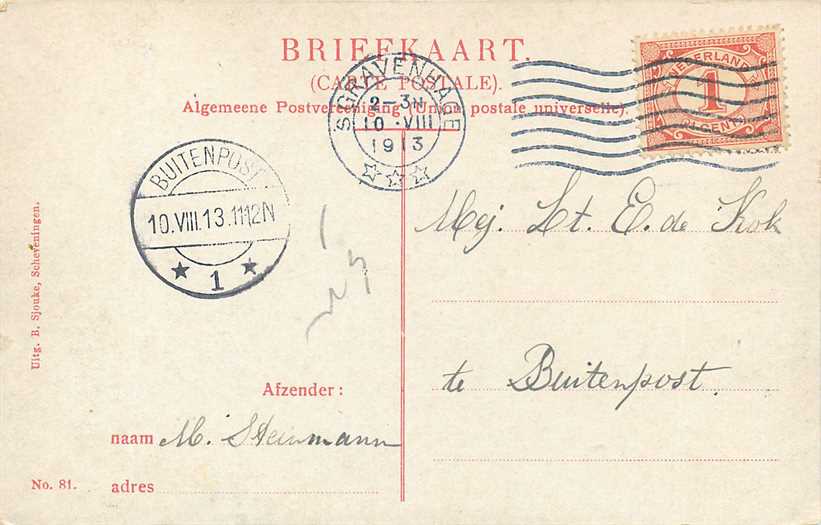 BRIEFKAART.
(CARTE POSTALE).
Algemeene Postvereeniging (Union postale universelle).
'SGRAVENHAGE
2-3N
10.VIII
1913
NEDERLAND
1
CENT
BUITENPOST
10.VIII.13.11-12N
1
Mej. Lt. E. de Kok
te Buitenpost.
Uitg. B. Sjouke, Scheveningen.
Afzender:
naam M. Steinmann
No. 81.
adres